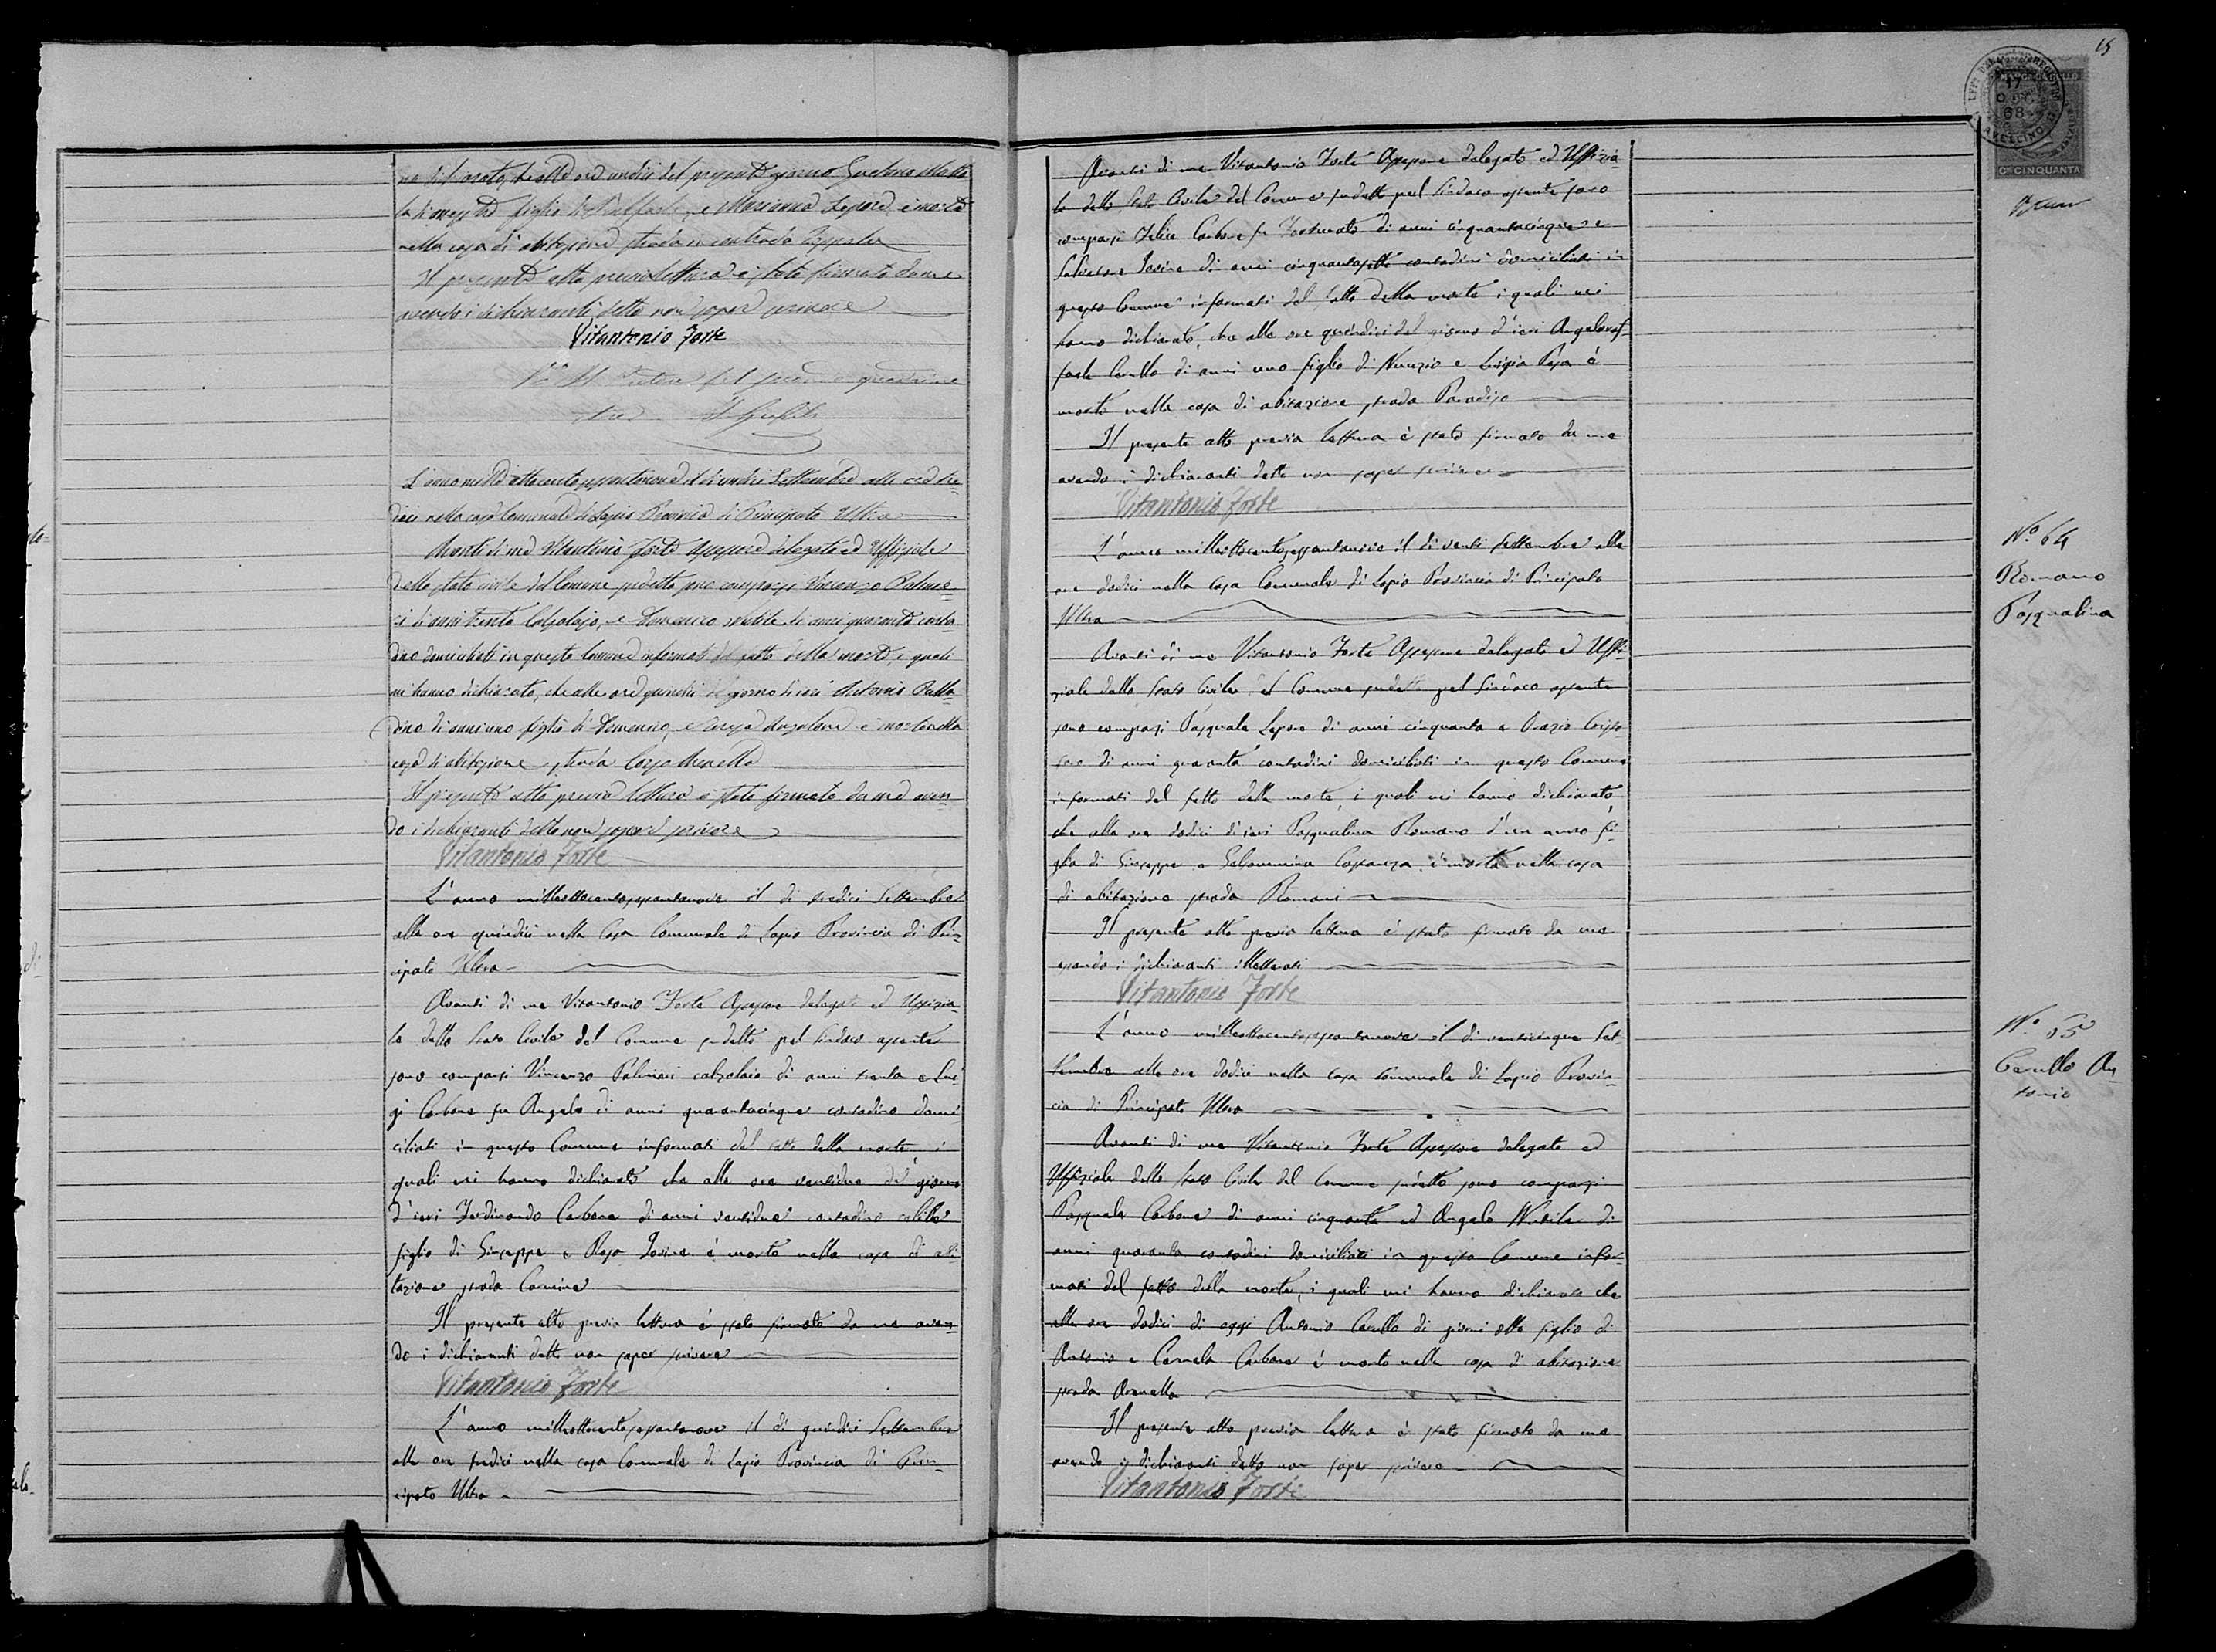 no dichiarato, che alle ore undici del presente giorno Gaetano
la di mesi tre figlio di e Marianna Lepore, è morto
nella casa di abitazione strada o contrada
Il presente atto previa lettura è stato firmato da me
avendo i dichiaranti detto non saper scrivere
Vitantonio Forte
L'anno mille ottocento sessantanove il dì undici Settembre alle ore tre-
dici nella casa Comunale di Lapio Provincia di Principato Ultra
Avanti di me Vitantonio Forte Assessore delegato ed Uffiziale
dello stato civile del Comune sudetto sono comparsi Vincenzo Palmie-
ri di anni trenta Calzolajo, e Domenico Nutile di anni quaranta conta-
dino domiciliati in questo Comune informati del fatto della morte, i quali
mi hanno dichiarato, che alle ore quindici del giorno di ieri Antonio Balla
dino di anni uno figlio di Domenico, e Teresa è morto nella
casa di abitazione strada
Il presente atto previa lettura è stato firmato da me aven-
do i dichiaranti detto non sapere scrivere
Vitantonio Forte
L'anno milleottocentosessantanove il dì tredici Settembre
alle ore quindici nella Casa Comunale di Lapio Provincia di Prin-
cipato Ultra
Avanti di me Vitantonio Forte Assessore delegato ed Uffizia-
le dello Stato Civile del Comune sudetto pel Sindaco assente
sono comparsi Vincenzo Palmieri calzolaio di anni trenta e Lui-
gi Carbone fu Angelo di anni quarantacinque contadino domi-
ciliati in questo Comune informati del fatto della morte, i
quali mi hanno dichiarato che alle ore ventidue del giorno
d'ieri Ferdinando Carbone di anni ventidue contadino celibe
figlio di Giuseppe e Rosa Iovine è morto nella casa di abi-
tazione strada Carmine
Il presente atto previa lettura è stato firmato da me aven-
do i dichiaranti detto non saper scrivere
Vitantonio Forte
L'anno milleottocentosessantanove il dì quindici Settembre
alle ore tredici nella casa Comunale di Lapio Provincia di Prin-
cipato Ultra
15
17
68
AVELLINO
Cmi CINQUANTA
Avanti di me Vitantonio Forte Assessore delegato ed Uffizia-
le dello Stato Civile del Comune sudetto pel Sindaco assente sono
comparsi Felice Carbone fu Fortunato di anni cinquantacinque e
Salvatore Iovine di anni cinquantasette contadini domiciliati in
questo Comune informati del fatto della morte i quali mi
hanno dichiarato, che alle ore quindici del giorno d'ieri Angeloraf-
faele Carullo di anni uno figlio di Nunzio e Luigia Pepa è
morto nella casa di abitazione strada Paradiso
Il presente atto previa lettura è stato firmato da me
avendo i dichiaranti detto non saper scrivere
Vitantonio Forte
L'anno milleottocentosessantanove il dì venti Settembre alle
ore dodici nella Casa Comunale di Lapio Provincia di Principato
Ultra
Avanti di me Vitantonio Forte Assessore delegato ed Uffi-
ziale dello Stato Civile del Comune sudetto pel Sindaco assente
sono comparsi Pasquale Lepore di anni cinquanta e Orazio
di anni quaranta contadini domiciliati in questo Comune
informati del fatto della morte, i quali mi hanno dichiarato
che alle ore dodici di ieri Pasqualina Romano d'un anno fi-
glia di Giuseppe e Gelsomina Costanza è morta nella casa
di abitazione strada Romani
Il presente atto previa lettura è stato firmato da me
essendo i dichiaranti illetterati
Vitantonio Forte
L'anno milleottocentosessantanove il dì venticinque Set-
tembre alle ore dodici nella casa Comunale di Lapio Provin-
cia di Principato Ultra
Avanti di me Vitantonio Forte Assessore delegato ed
Uffiziale dello Stato Civile del Comune sudetto sono comparsi
Pasquale Carbone di anni cinquanta ed Angelo Nutile di
anni quaranta contadini domiciliati in questo Comune infor-
mati del fatto della morte, i quali mi hanno dichiarato che
alle ore dodici di oggi Antonio Carullo di giorni otto figlio di
Antonio e Carmela Carbone è morto nella casa di abitazione
strada Arenella
Il presente atto previa lettura è stato firmato da me
avendo i dichiaranti detto non saper scrivere
Vitantonio Forte
No. 64
Romano
Pasqualina
No. 65
Carullo An-
tonio